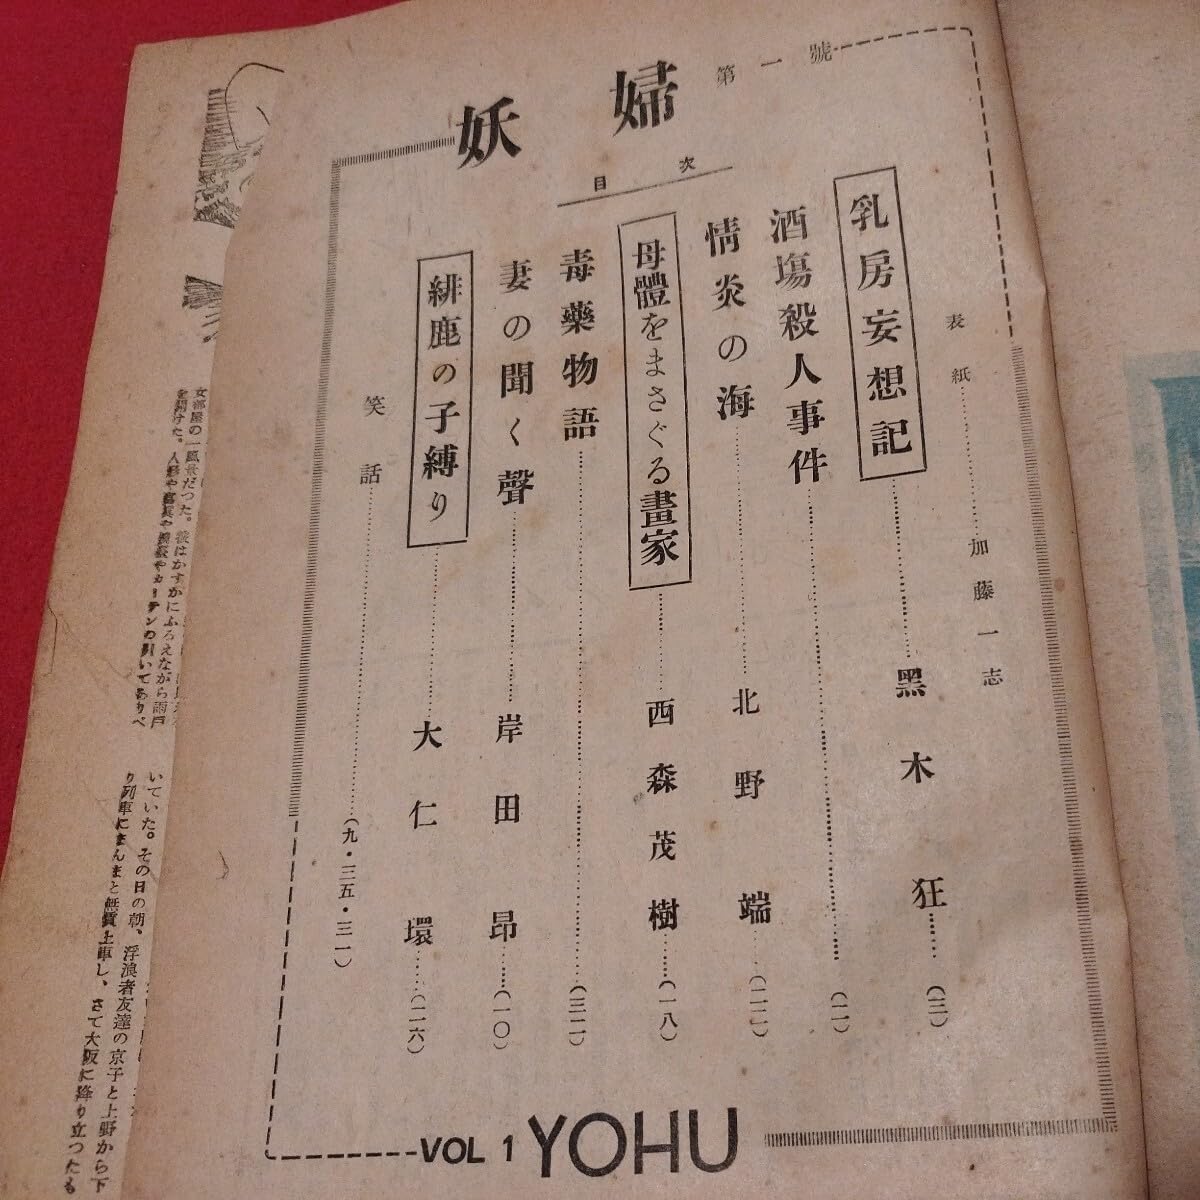 妖婦 第一號
目次
表紙……加藤一志
乳房妄想記……黑木狂……(三)
酒場殺人事件……(一一)
情炎の海……北野端……(二二)
母體をまさぐる畫家……西森茂樹……(一八)
毒藥物語……(三二)
妻の聞く聲……岸田昂……(一〇)
緋鹿の子縛り……大仁環……(二六)
笑話……(九・三五・三一)
VOL 1 YOHU
女部屋の一風景だつた。彼はかすかにふるえながら雨戸
いていた。その日の朝、浮浪者友達の京子と上野から下
り列車にまんまと無賃上車し、さて大阪に降り立つたも